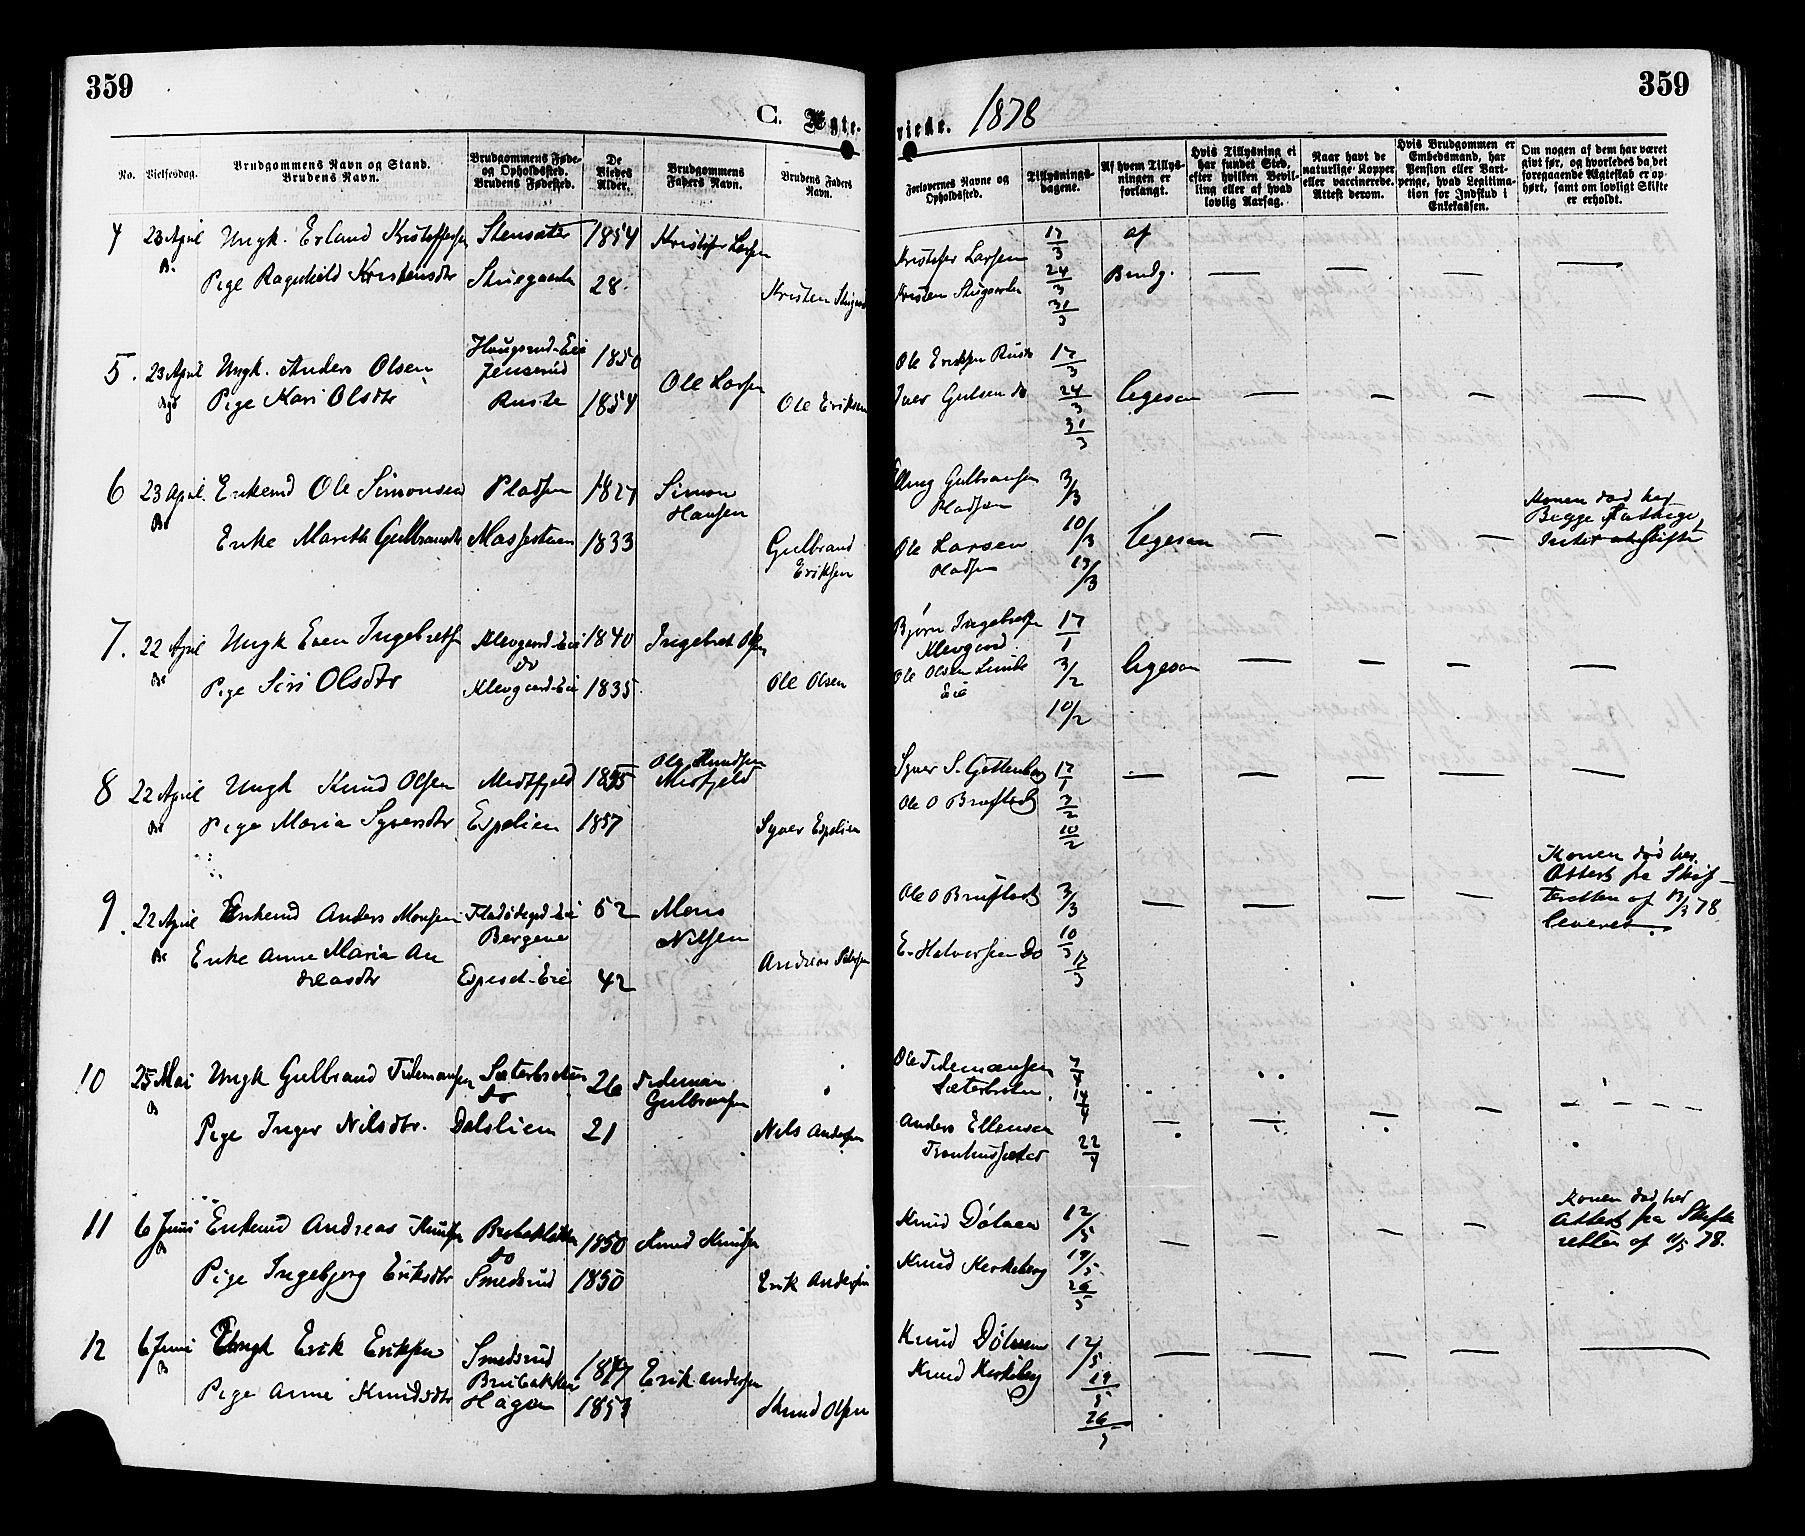 359
359
C. Ægte-
viede. 1878
No.
Vielsesdag.
Brudgommens Navn og Stand.
Brudens Navn.
Brudgommens Føde-
og Opholdssted.
Brudens Fødested.
De
Viedes
Alder.
Brudgommens
Faders Navn.
Brudens Faders
Navn.
Forlovernes Navne og
Opholdssted.
Tillysnings-
dagene.
Af hvem Tillys-
ningen er
forlangt.
Hvis Tillysning ei
har fundet Sted,
efter hvilken Bevil-
ling eller af hvad
lovlig Aarsag.
Naar havt de
naturlige Kopper
eller vaccinerede.
Attest derom.
Hvis Brudgommen er
Embedsmand, har
Pension eller Vart-
penge, hvad Legitima-
tion for Indskud i
Enkekassen.
Om nogen af dem har været
givt før, og hvorledes da det
foregaaende Ægteskab er op-
hørt, samt om lovligt Skifte
er erholdt.
4 23 April Ungk. Erland Kristoffersen Stensæter 1854 Kristofer Larsen
Pige Ragnhild Kristensdtr Stuegaarden 28 Kristen
Kristofer Larsen 17/3 af
Kristen Stugaarden 24/3 Brudg.
31/3
5. 23 April Ungk. Anders Olsen Haugerud-Eie Jenserud 1850 Ole Larsen
Pige Kari Olsdtr Ruste 1854 Ole Eriksen
Ole Eriksen Ruste 17/3
Iver do 24/3 Begesen
31/3
6 23 April. Enkemd Ole Simonsen Pladsen 1827 Simon Hansen
Enke Marith Gulbrandsdtr 1833 Gulbrand Eriksen
Gulbransen Pladsen 3/3
Ole Larsen Pladsen 10/3
17/3
Konen død her
Begge Fattige,
Intet at skifte
7. 22 April Ungk Even Ingebretsen Klevgaard-Eie 1840 Ingebret Olsen
do
Pige Siri Olsdtr Klevgaard-Eie 1835 Ole Olsen
Bjørn Ingebretsen Klevgaard 17/1
Ole Olsen Linde Eie 3/2
10/2
8 22 April Ungk Knud Olsen Midtfjeld 1855 Ole Knudsen Midtfjeld
Pige Maria Syversdtr Espelien 1857 Syver Espelien
Syver S. Gettenborg 17/1
Ole O Bruflodt 3/2
10/2
9. 22 April Enkemd Anders Monsen Bergene 52 Mons Nilsen
Enke Anne Maria An
dreasdtr Espeset-Eie 42 Andreas
Ole O Bruflodt 3/3
E. Halvorsen Do 10/3
17/3
Konen død her.
Attest fra Skif-
teretten af 13/3 78
leveret.
10 25 Mai Ungk Gulbrand Tidemansen Sæterbraaten 26 Tideman Gulbransen
do
Pige Inger Nilsdtr. Dalslien 21 Nils Andersen
Ole Tidemansen 7/4
Sæterbraten 14/4
Anders Ellensen
22/4
11 6 Juni Enkemd Andreas Knudsen Brubakken 1850 Knud Knudsen
do
Pige Ingebjørg Eriksdtr Smedsrud 1850 Erik Andersen
Knud Dølven 12/5
Knud Kirkeberg 19/5
26/5
Konen død her
Attest fra Skifte
retten af 11/5 78.
12 6 Juni Ungk Erik Eriksen Smedsrud Brubakken 1847 Erik Andersen
Pige Anne Knudsdtr Hagen 1853 Knud Olsen
Knud Dølven 12/5
Knud Kirkeberg 19/5
26/5